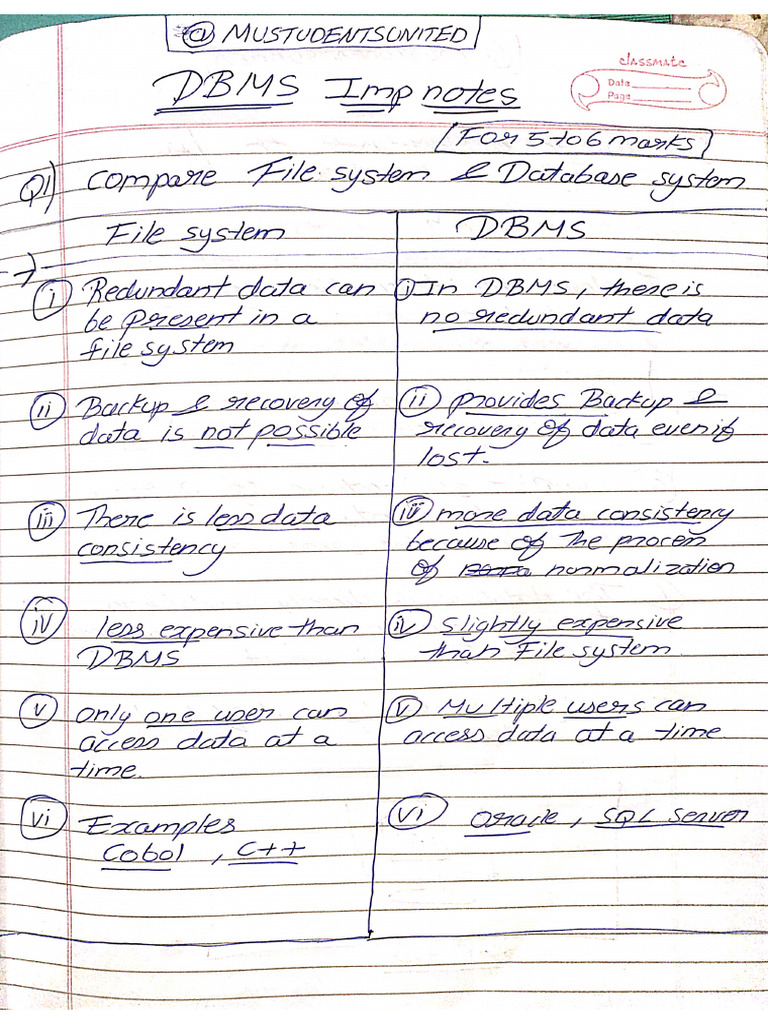 @ MUSTUDENTSUNITED
classmate
Date
Page
DBMS Imp notes
(For 5 to 6 marks)
Q1) Compare File system & Database system
File system
DBMS
→
i Redundant data can
be present in a
file system
i In DBMS, there is
no redundant data
ii Backup & recovery of
data is not possible
ii provides Backup &
recovery of data even if
lost.
iii There is less data
consistency
iii more data consistency
because of the process
of normalization
iv less expensive than
DBMS
iv Slightly expensive
than File system
v only one user can
access data at a
time.
v Multiple users can
access data at a time
vi Examples
Cobol, C++
vi Oracle, SQL Server